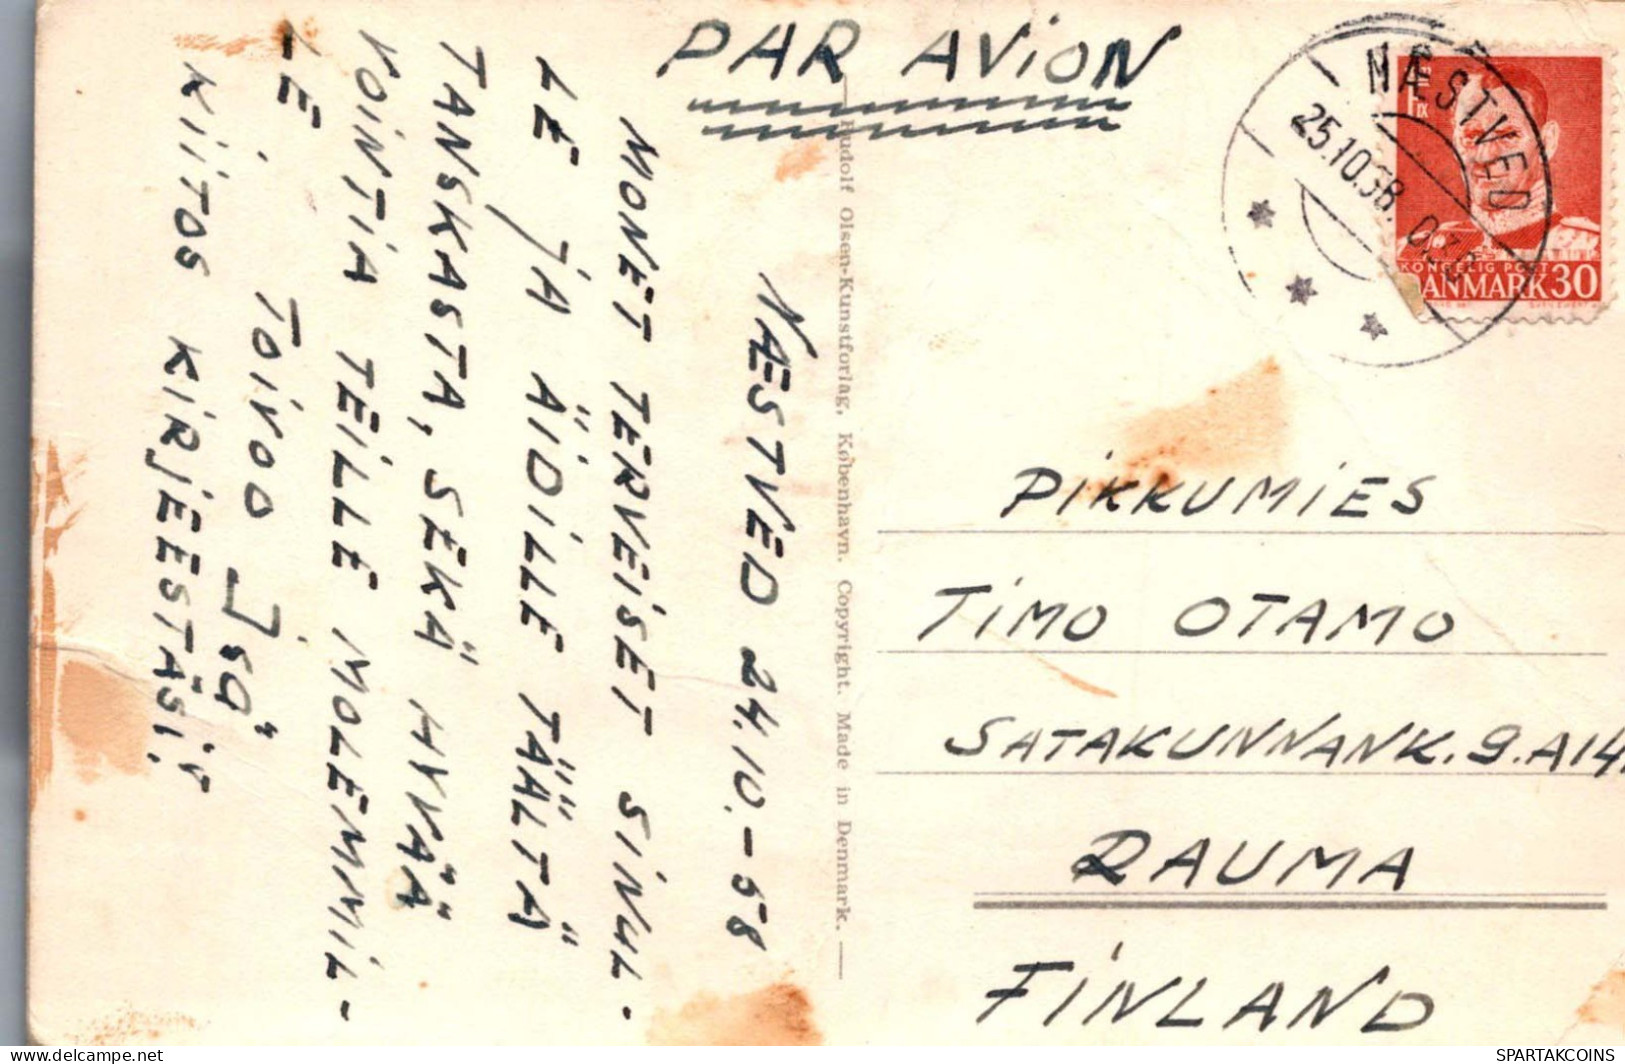 PAR AVION
NÆSTVED
25.10.58.
KONGELIG POST
DANMARK 30
NÆSTVED 24.10.-58
MONET TERVEISET SINUL-
LE JA ÄIDILLE TÄÄLTÄ
TANSKASTA, SEKÄ HYVÄÄ
VOINTIA TEILLE MOLEMMIL-
LE.
TOIVOO ISÄ
KIITOS KIRJEESTÄSI!
Rudolf Olsen-Kunstforlag, København. Copyright. Made in Denmark.
PIKKUMIES
TIMO OTAMO
SATAKUNNANK.9.A14
RAUMA
FINLAND
DELCAMPE.NET
SPARTAKCOINS